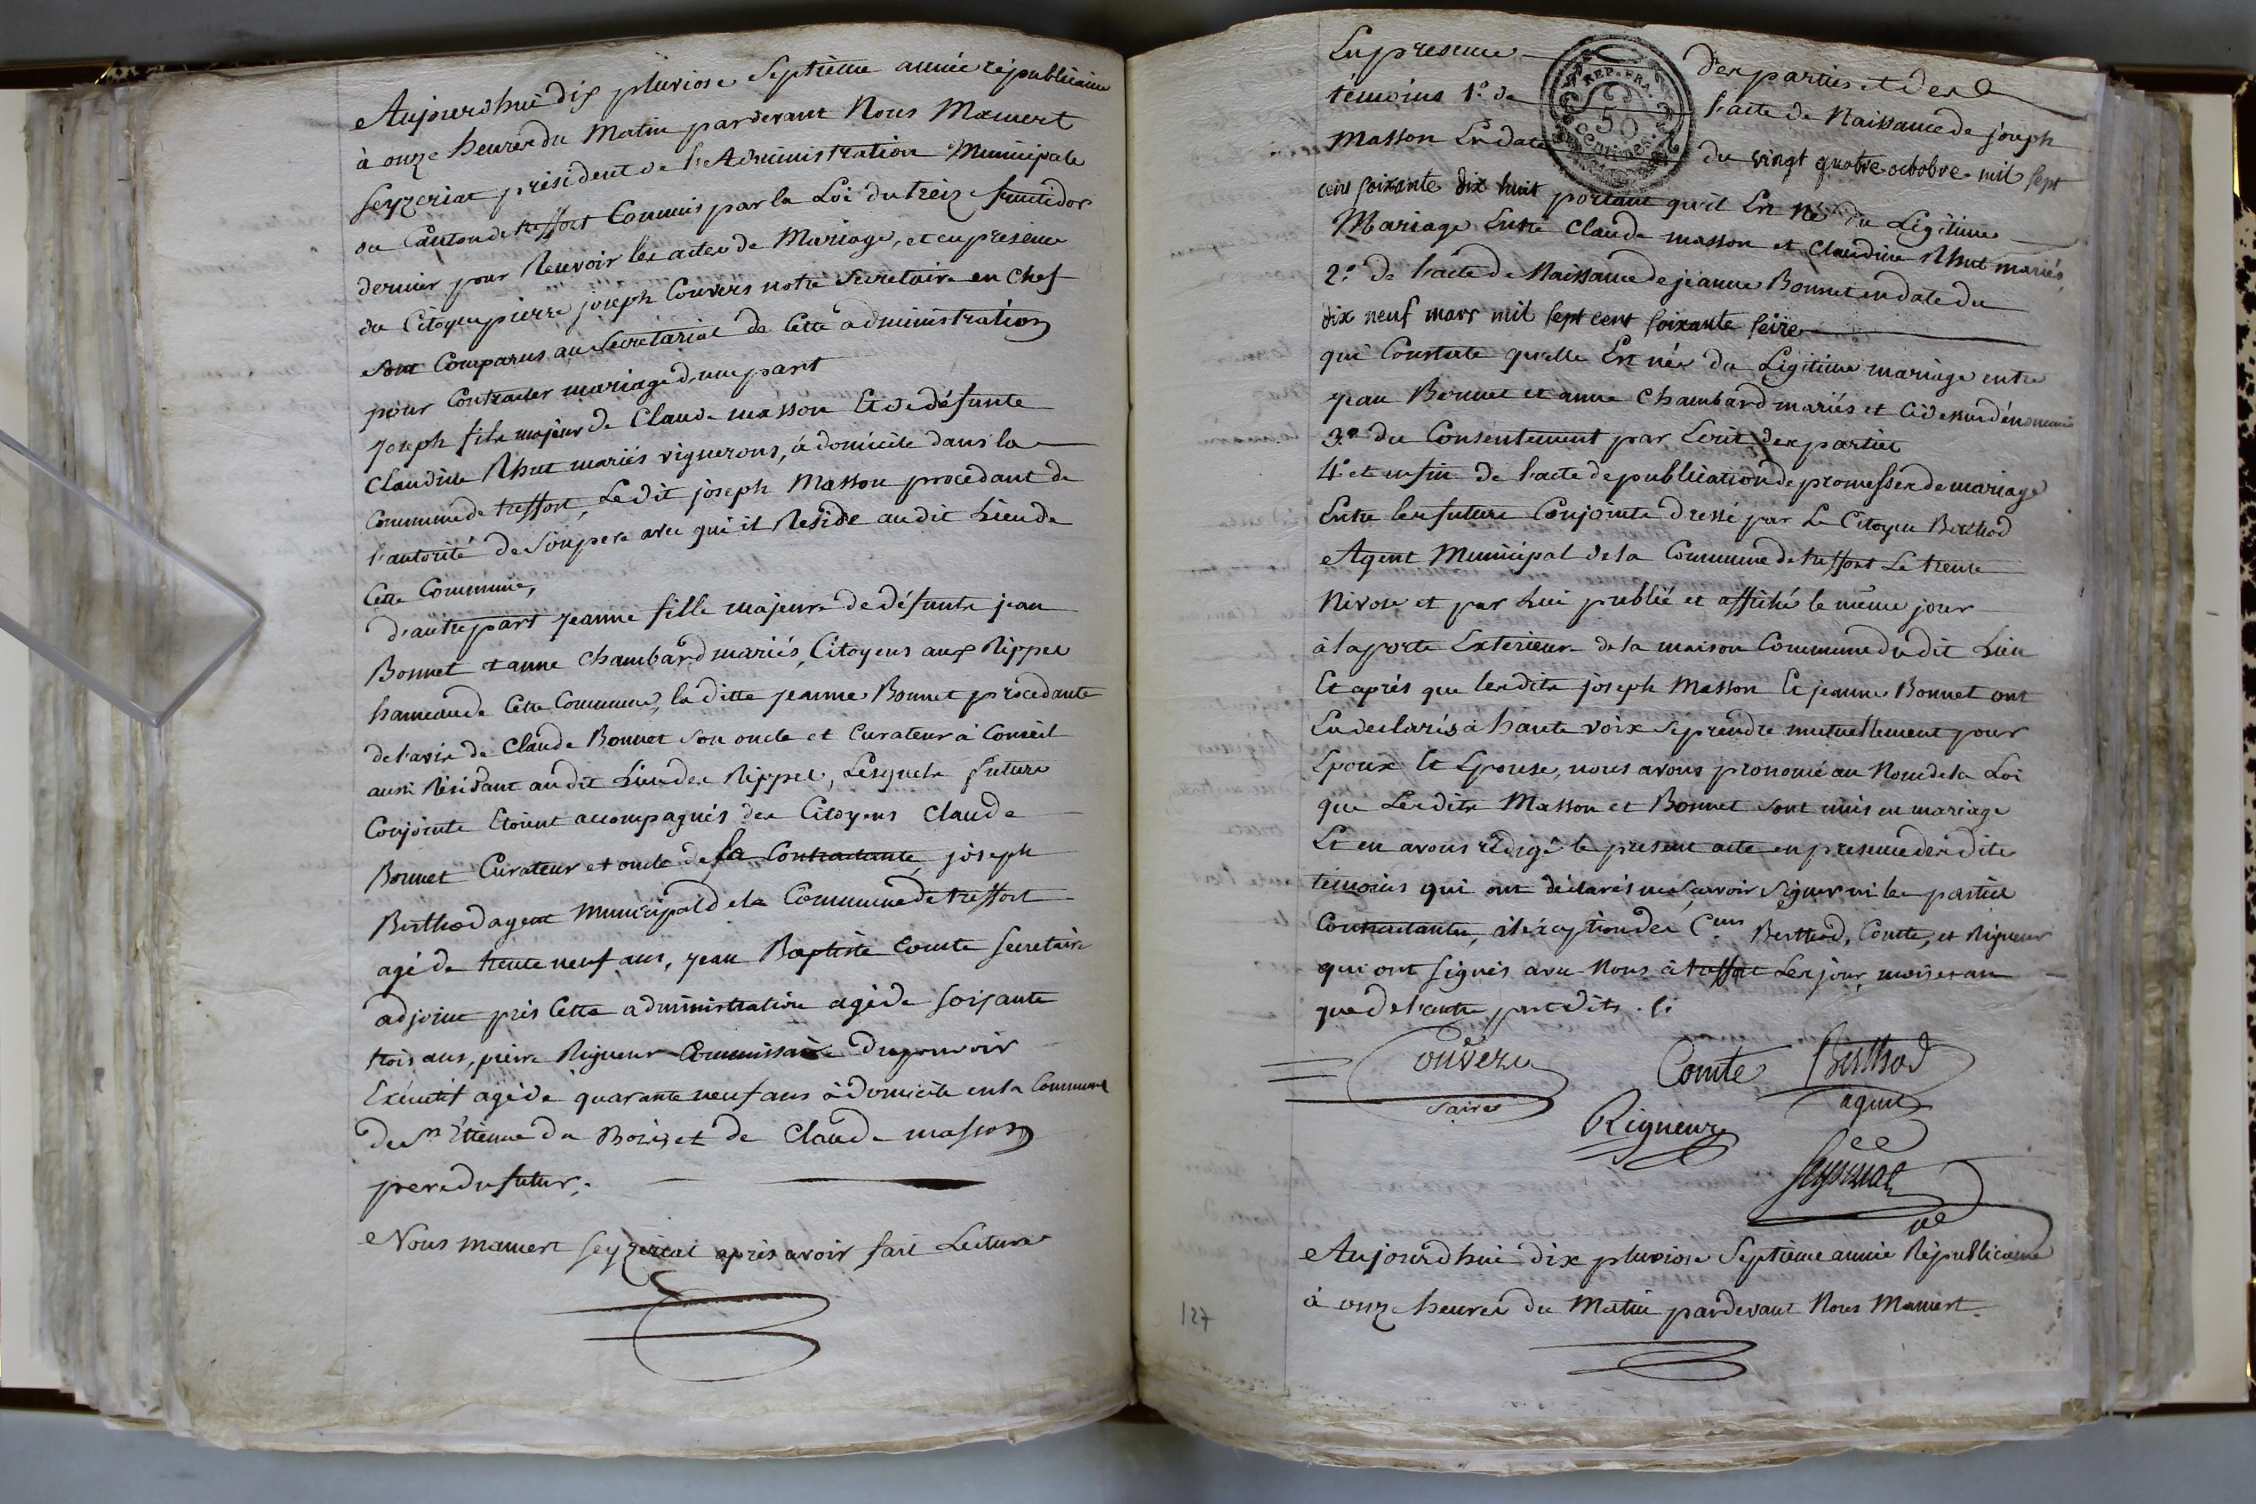 Aujourdhui dix pluviose septieme année républicaine
à onze heures du Matin pardevant Nous Mamert
Seyzeriat président de l'Administration Municipale
du Canton de treffort Commis par la Loi du treize fructidor
dernier pour Recevoir les actes de Mariage, et en presence
du Citoyen pierre joseph Convers notre Secretaire en Chef
sont Comparus au Secretariat de Cette administration
pour Contracter mariage d'une part
joseph fils majeur de Claude masson Et de défunte
Claudine Rhut mariés vignerons, à domicile dans la
Commune de treffort, Le dit joseph Masson procedant de
l'autorité de Son pere avec qui il Reside audit Lieu de
Cette Commune,
d'autre part jeanne fille majeure de défunts jean
Bonnet et anne Chambard mariés, Citoyens aux Rippes
hameau de Cette Commune, la ditte jeanne Bonnet procedante
de l'avis de Claude Bonnet Son oncle et Curateur à Conseil
aussi Résidant au dit Lieu des Rippes, Lesquels futurs
Conjoints Etoient accompagnés des Citoyens Claude
Bonnet Curateur et oncle de la Contractante, joseph
Berthod agent municipal de la Commune de treffort
agé de trente neuf ans, jean Baptiste Comte Secretaire
adjoint près Cette administration agé de soixante
trois ans, pierre Rigueur Commissaire du pouvoir
Exécutif agé de quarante neuf ans à domicile en la Commune
de St Etienne du Bois, et de Claude masson
pere du futur.
Nous mamert Seyzeriat après avoir fait Lecture
En presence des parties et des
témoins 1.º de l'acte de Naissance de joseph
Masson En date du vingt quatre octobre mil sept
cent soixante dix huit portant qu'il Est Né du Légitime
Mariage Entre Claude masson et Claudine Rhut mariés,
2.º de l'acte de Naissance de jeanne Bonnet en date du
dix neuf mars mil sept cent soixante seize
qui Constate quelle Est née du Légitime mariage entre
jean Bonnet et anne Chambard mariés et Ci dessus dénommés
3.º du Consentement par Ecrit des parties
4.º et enfin de l'acte de publication de promesses de mariage
Entre les futurs Conjoints dressé par Le Citoyen Berthod
Agent Municipal de la Commune de treffort Le trente
Nivose et par Lui publié et affiché le même jour
à la porte Extérieure de la maison Commune du dit Lieu
Et après que lesdits joseph Masson Et jeanne Bonnet ont
Eu declarés à haute voix se prendre mutuellement pour
Epoux Et Epouse, nous avons prononcé au Nom de la Loi
que Lesdits Masson et Bonnet sont unis en mariage
Et en avons rédigé le present acte en presence des dits
témoins qui ont déclarés ne sçavoir signer ni les parties
Contractantes, à l'exception des Cens Berthod, Comte, et Rigueur
qui ont signés avec Nous à treffort Les jour, mois et an
que de l'autre part dits.
REP. FRA.
50
centimes
Convers
Comte
Berthod
agent
Rigueur
Seyzeriat
Aujourd'hui dix pluviose Septieme année Républicaine
à onze heures du Matin pardevant Nous Mamert
127